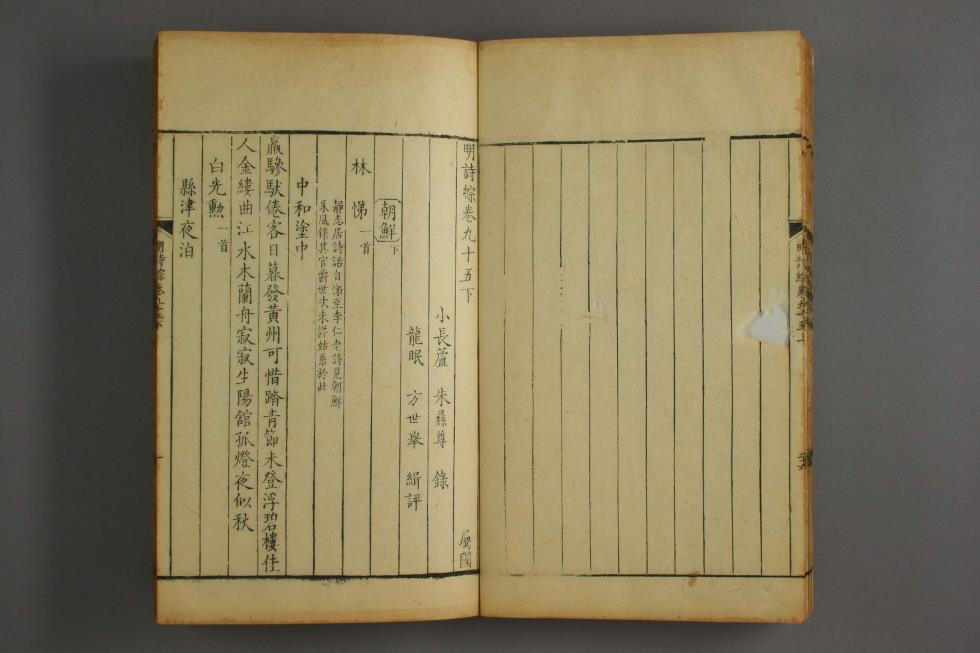 明詩綜卷九十五上
明詩綜卷九十五下 屬國
小長蘆 朱彝尊 錄
龍眠 方世舉 緝評
朝鮮下
林悌一首
靜志居詩話自悌至李仁老詩見朝鮮
采風錄其官爵世次未詳姑系於此
中和塗中
羸驂馱倦客日暮發黃州可惜踏青節未登浮碧樓佳
人金縷曲江水木蘭舟寂寂生陽館孤燈夜似秋
白光勳一首
縣津夜泊
明詩綜卷九十五下
一